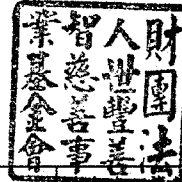 財團法
人世豐善
智慈善事
業基金會